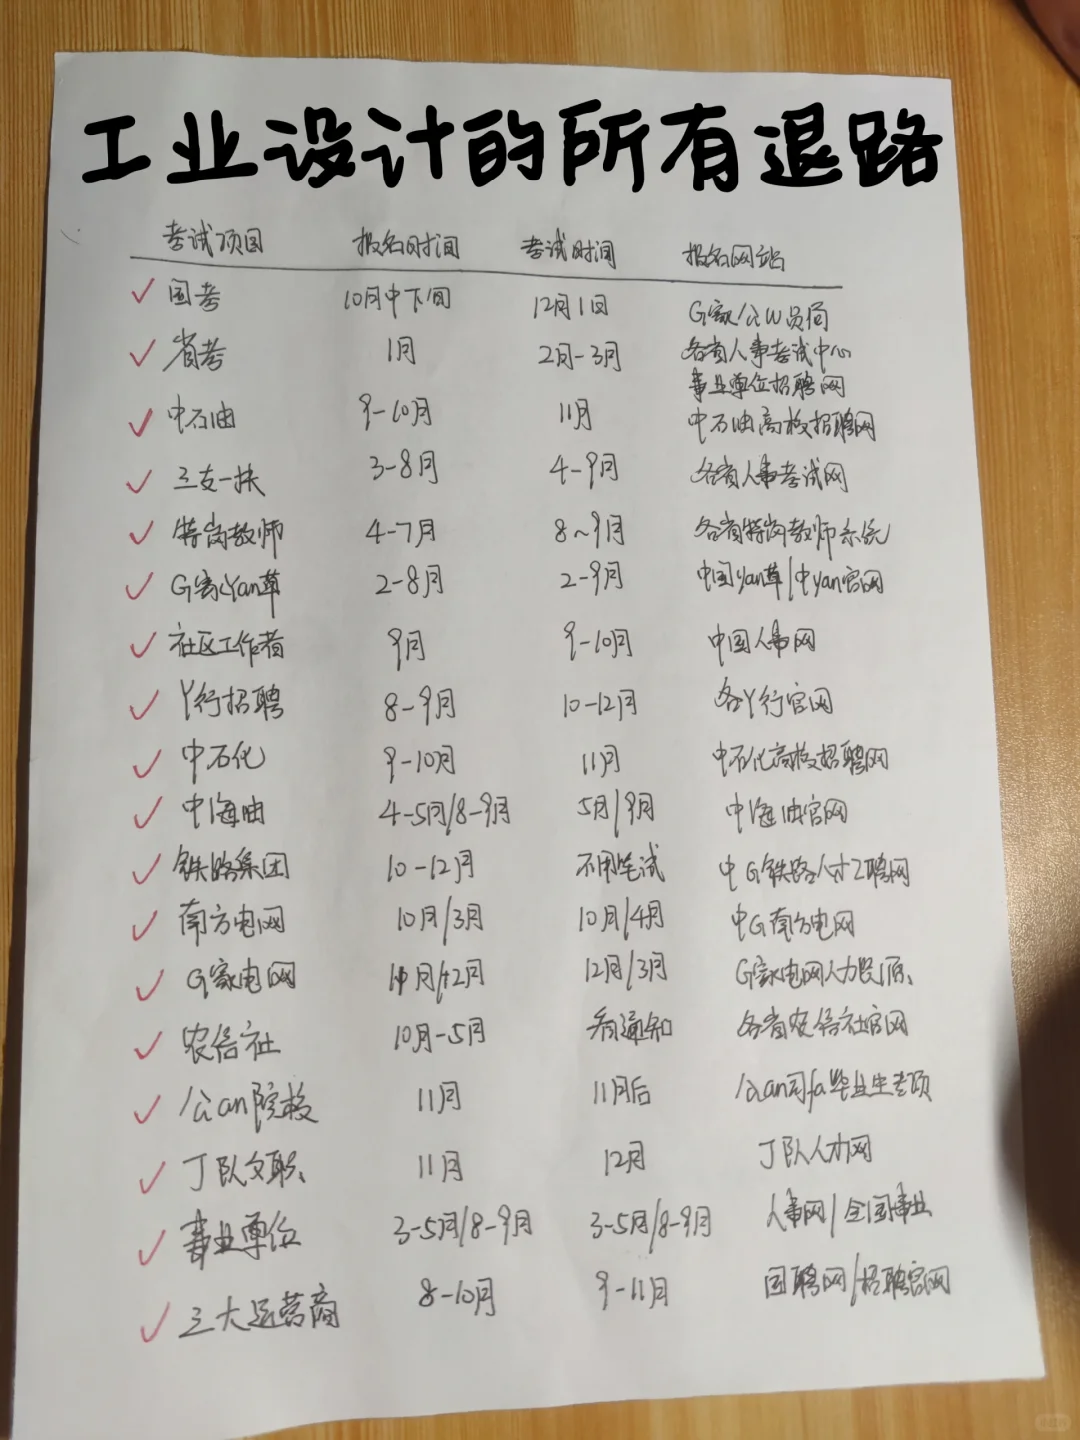 工业设计的所有退路
考试项目 报名时间 考试时间 报名网站
国考 10月中下旬 12月1日 G家公W员局
省考 1月 2月-3月 各省人事考试中心
事业单位招聘网
中石油 9-10月 11月 中石油高校招聘网
三支一扶 3-8月 4-9月 各省人事考试网
特岗教师 4-7月 8~9月 各省特岗教师系统
G家yan草 2-8月 2-9月 中国yan草/中yan官网
社区工作者 9月 9-10月 中国人事网
Y行招聘 8-9月 10-12月 各Y行官网
中石化 9-10月 11月 中石化高校招聘网
中海油 4-5月/8-9月 5月/9月 中海油官网
铁路集团 10-12月 不用笔试 中G铁路人才Z聘网
南方电网 10月/3月 10月/4月 中G南方电网
G家电网 11月/12月 12月/3月 G家电网人力
农信社 10月-5月 看通知 各省农信社官网
公an院校 11月 11月后 公an司fa毕业生专项
J队文职 11月 12月 J队人才网
事业单位 3-5月/8-9月 3-5月/8-9月 人事网/全国事业
三大运营商 8-10月 9-11月 国聘网/招聘官网